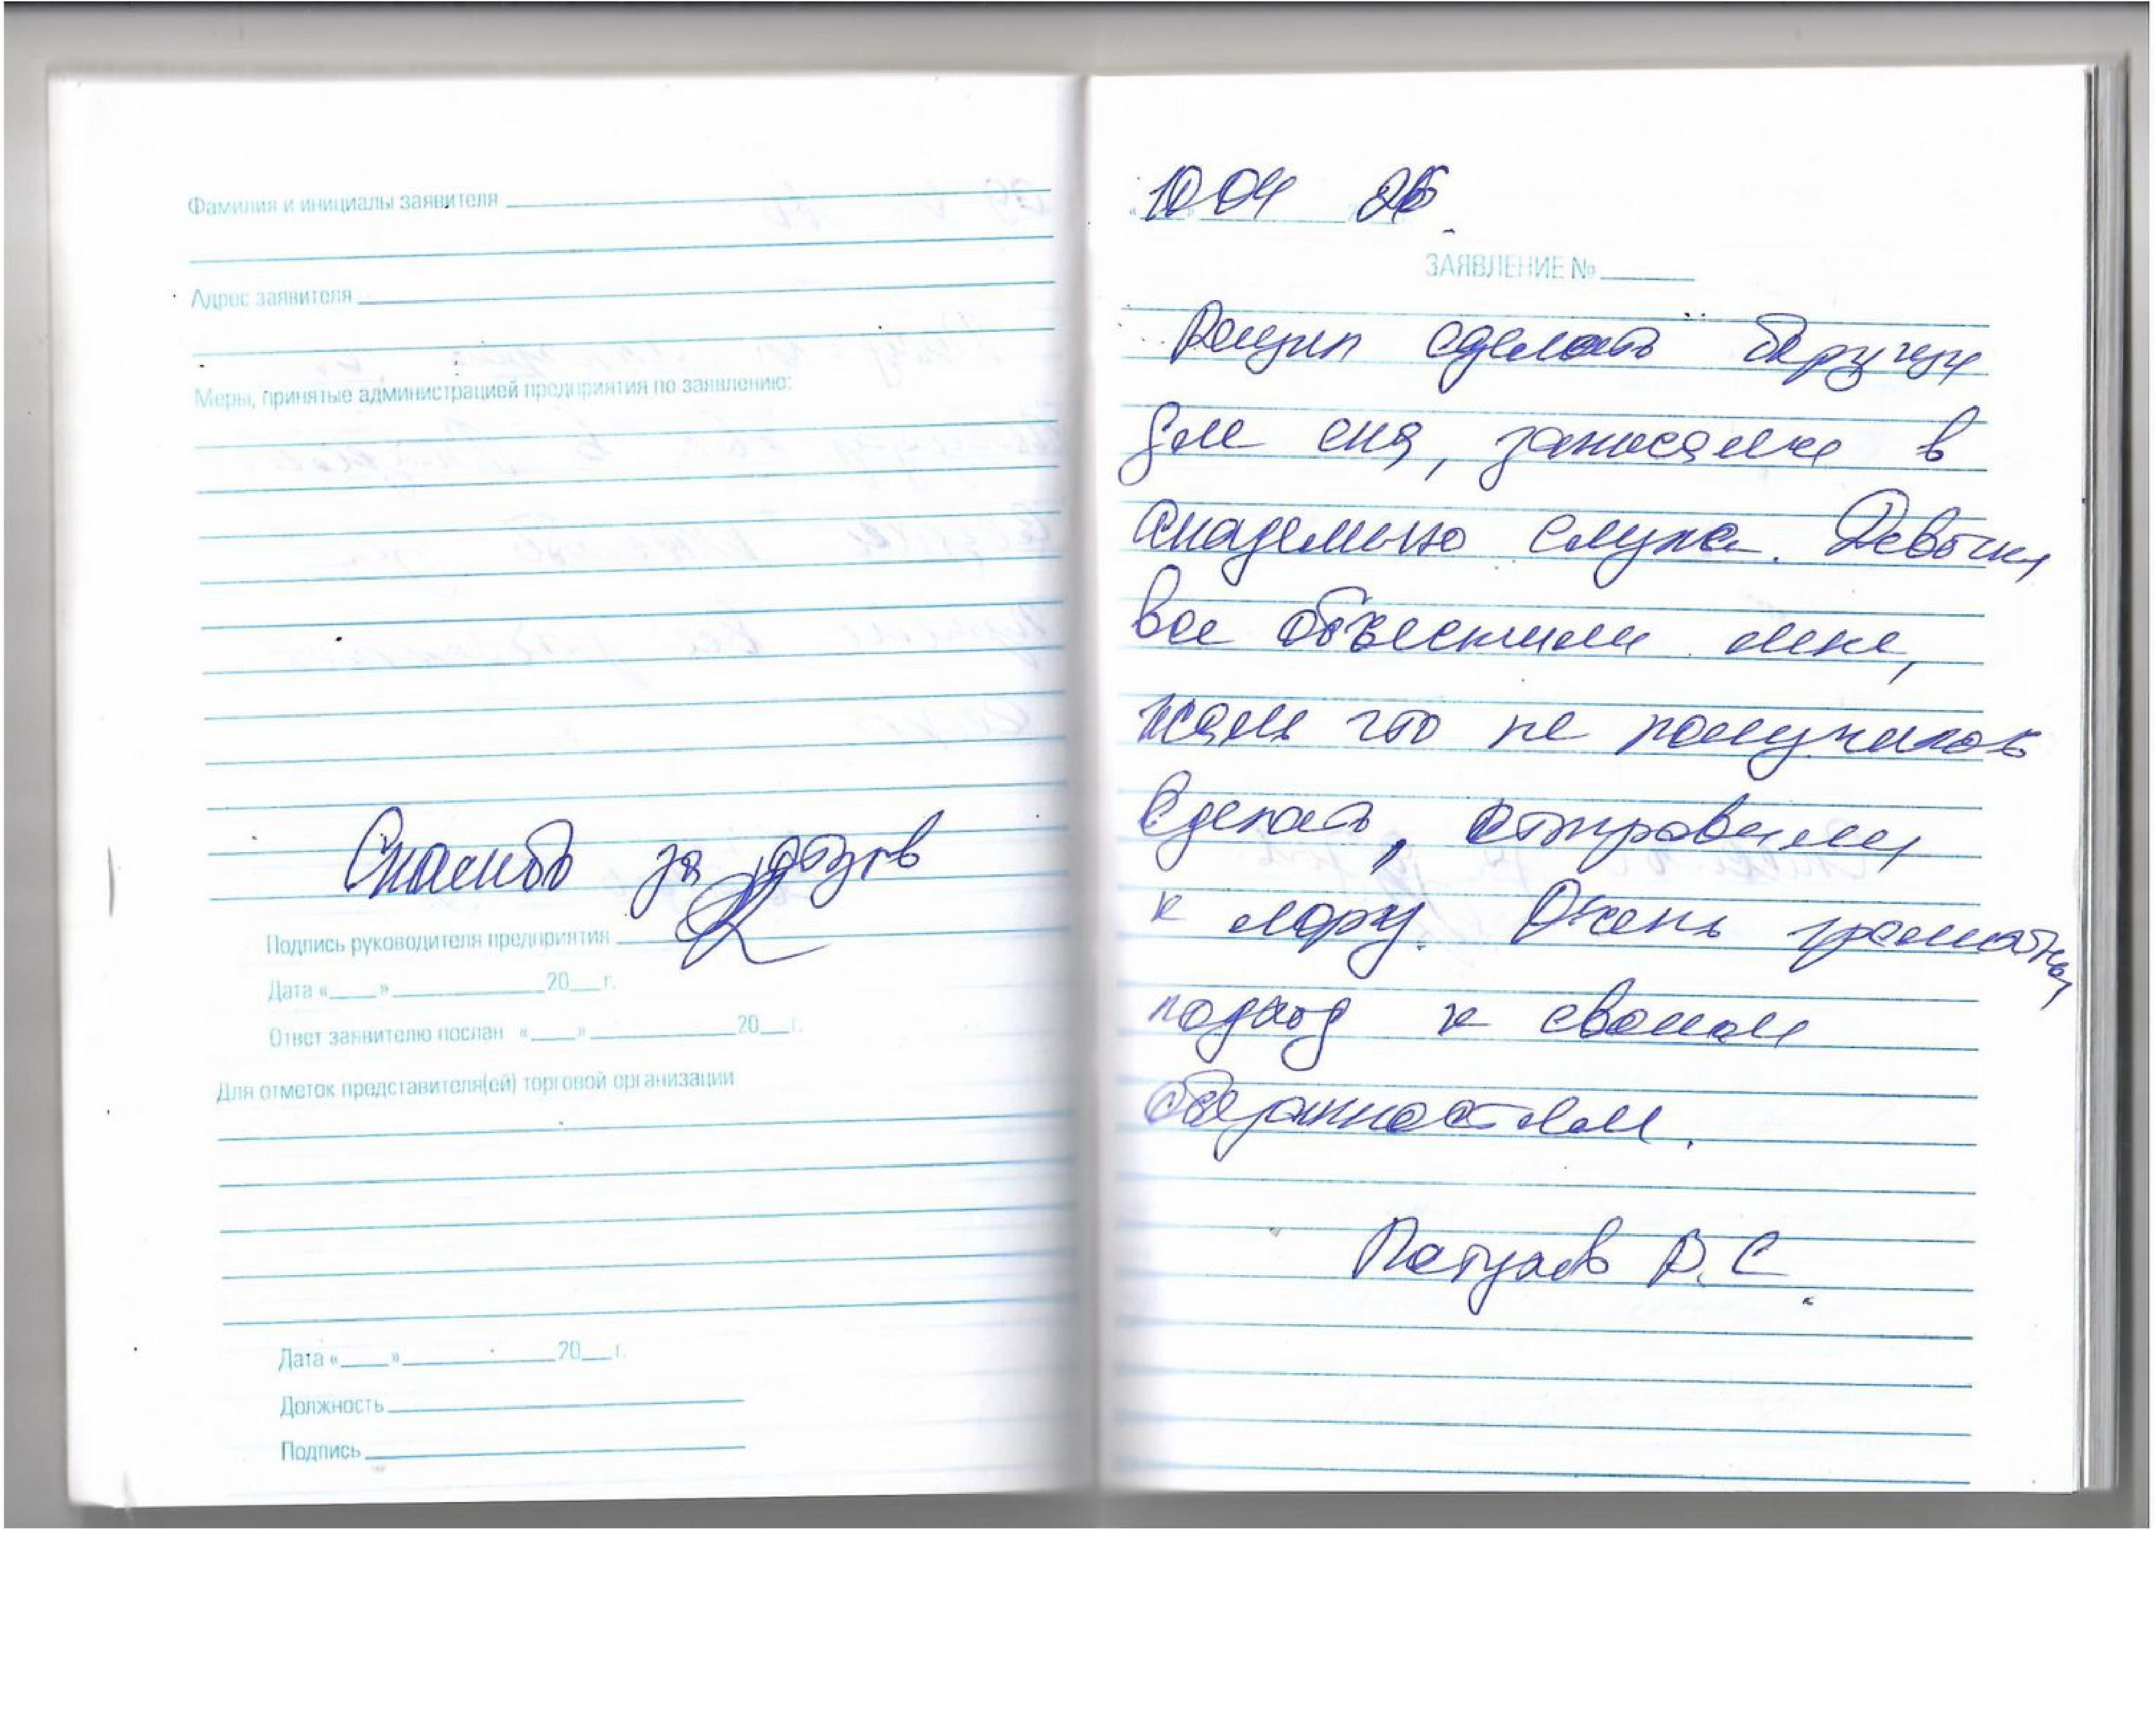 Фамилия и инициалы заявителя
Адрес заявителя
Меры, принятые администрацией предприятия по заявлению:
Спасибо за отзыв
Подпись руководителя предприятия
Дата «____»______________20___г.
Ответ заявителю послан «____»______________20___г.
Для отметок представителя(ей) торговой организации
Дата «____»______________20___г.
Должность
Подпись
10 04 26
ЗАЯВЛЕНИЕ №
Решил сделать беруши
для сна, записался в
Академию слуха. Девочки
все объяснили мне,
жаль что не получилось
сделать, отправили
к лору. Очень грамотный
подход к своим
обязанностям.
Р. С.